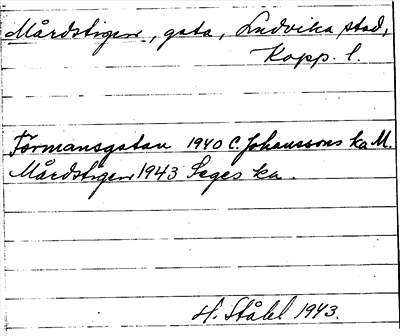 Mårdstigen, gata, Ludvika stad,
Kopp. l.
Formansgatan 1940 C. Johanssons ka M.
Mårdstigen 1943 Seges ka.
H. Ståhl 1943.